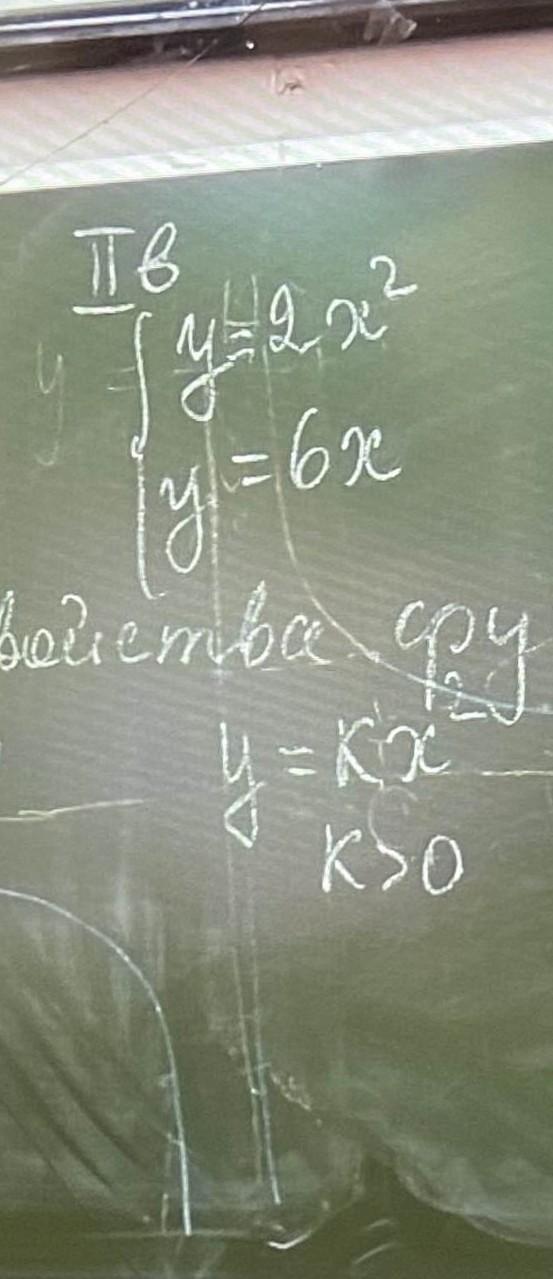 II в
y = 2x²
y = 6x
войства фу
y = Kx²
K>0